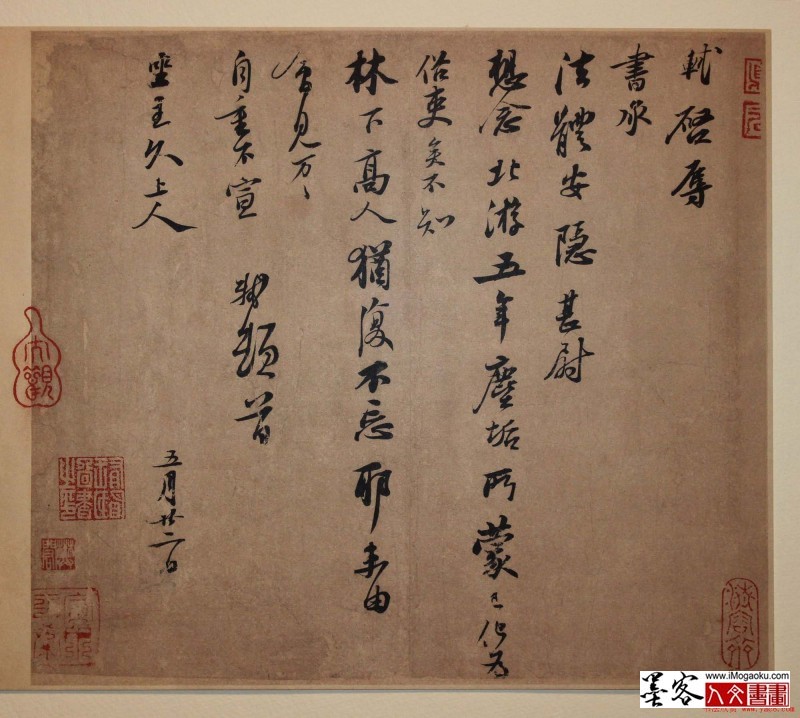 軾啓辱
書承
法體安隱甚尉
想念北游五年塵垢所蒙已化為
俗吏矣不知
林下高人猶復不忘耶未由
會見万〻
自重不宣 軾頓首
坐主久上人
五月廿二日
www.iMogaoku.com
墨客
人文書畫